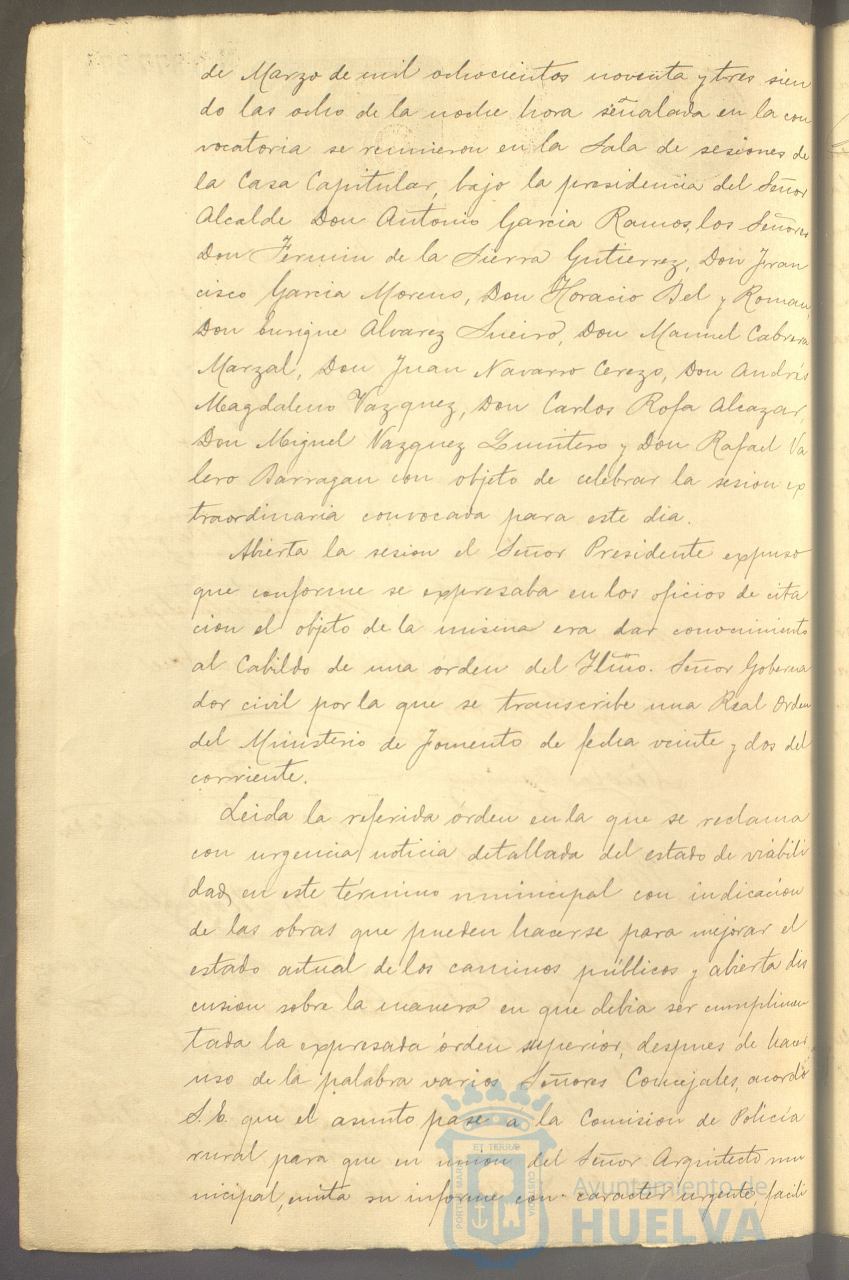 de Marzo de mil ochocientos noventa y tres sien
do las ocho de la noche hora señalada en la con
vocatoria se reunieron en la Sala de sesiones de
la Casa Capitular, bajo la presidencia del Señor
Alcalde Don Antonio Garcia Ramos, los Señores
Don Fermin de la Sierra Gutierrez, Don Fran
cisco Garcia Moreno, Don Horacio Bel y Roman,
Don Enrique Alvarez Sueiro, Don Manuel Cabrera
Marzal, Don Juan Navarro Cerezo, Don Andrés
Magdaleno Vazquez, Don Carlos Rofa Alcazar,
Don Miguel Vazquez Quintero y Don Rafael Va
lero Barragan con objeto de celebrar la sesion ex
traordinaria convocada para este dia.
Abierta la sesion el Señor Presidente expuso
que conforme se expresaba en los oficios de cita
cion el objeto de la misma era dar conocimiento
al Cabildo de una órden del Iltmo. Señor Goberna
dor civil por la que se transcribe una Real Orden
del Ministerio de Fomento de fecha veinte y dos del
corriente.
Leida la referida órden en la que se reclama
con urgencia noticia detallada del estado de viabili
dad, en este término municipal con indicacion
de las obras que pueden hacerse para mejorar el
estado actual de los caminos públicos y abierta dis
cusion sobre la manera en que debia ser cumplimen
tada la expresada órden superior, despues de hacer
uso de la palabra varios Señores Concejales, acordó
S. E. que el asunto pase a la Comision de Policía
rural para que en union del Señor Arquitecto mu
nicipal, emita su informe con caracter urgente, facili
ET TERRÆ
PORTUS MARIS
CUSTODIA
Ayuntamiento de
HUELVA